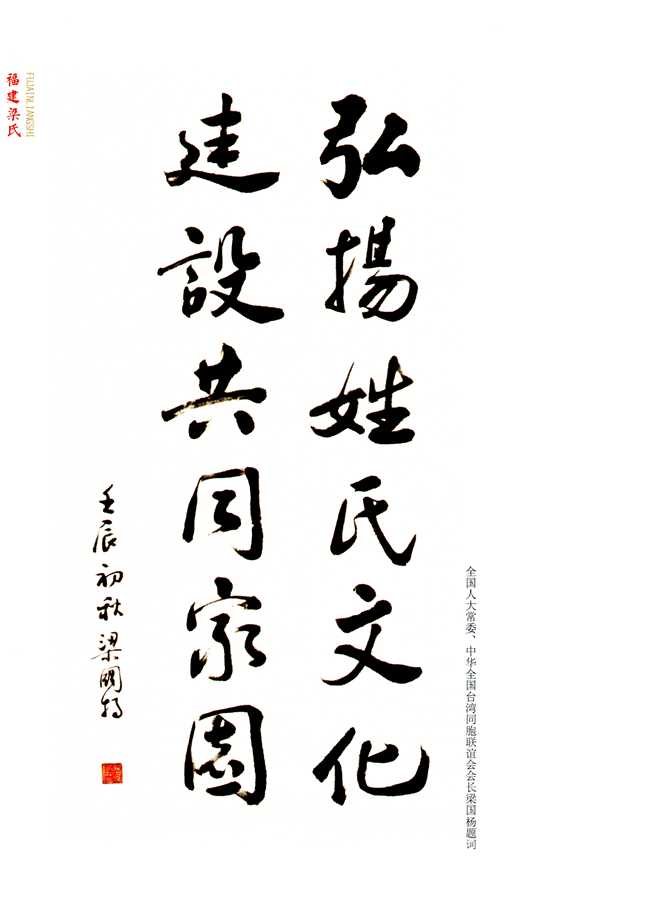 福建梁氏
FUJIAN LIANGSHI
弘揚姓氏文化
建設共同家園
壬辰初秋梁國揚
全国人大常委、中华全国台湾同胞联谊会会长梁国杨题词